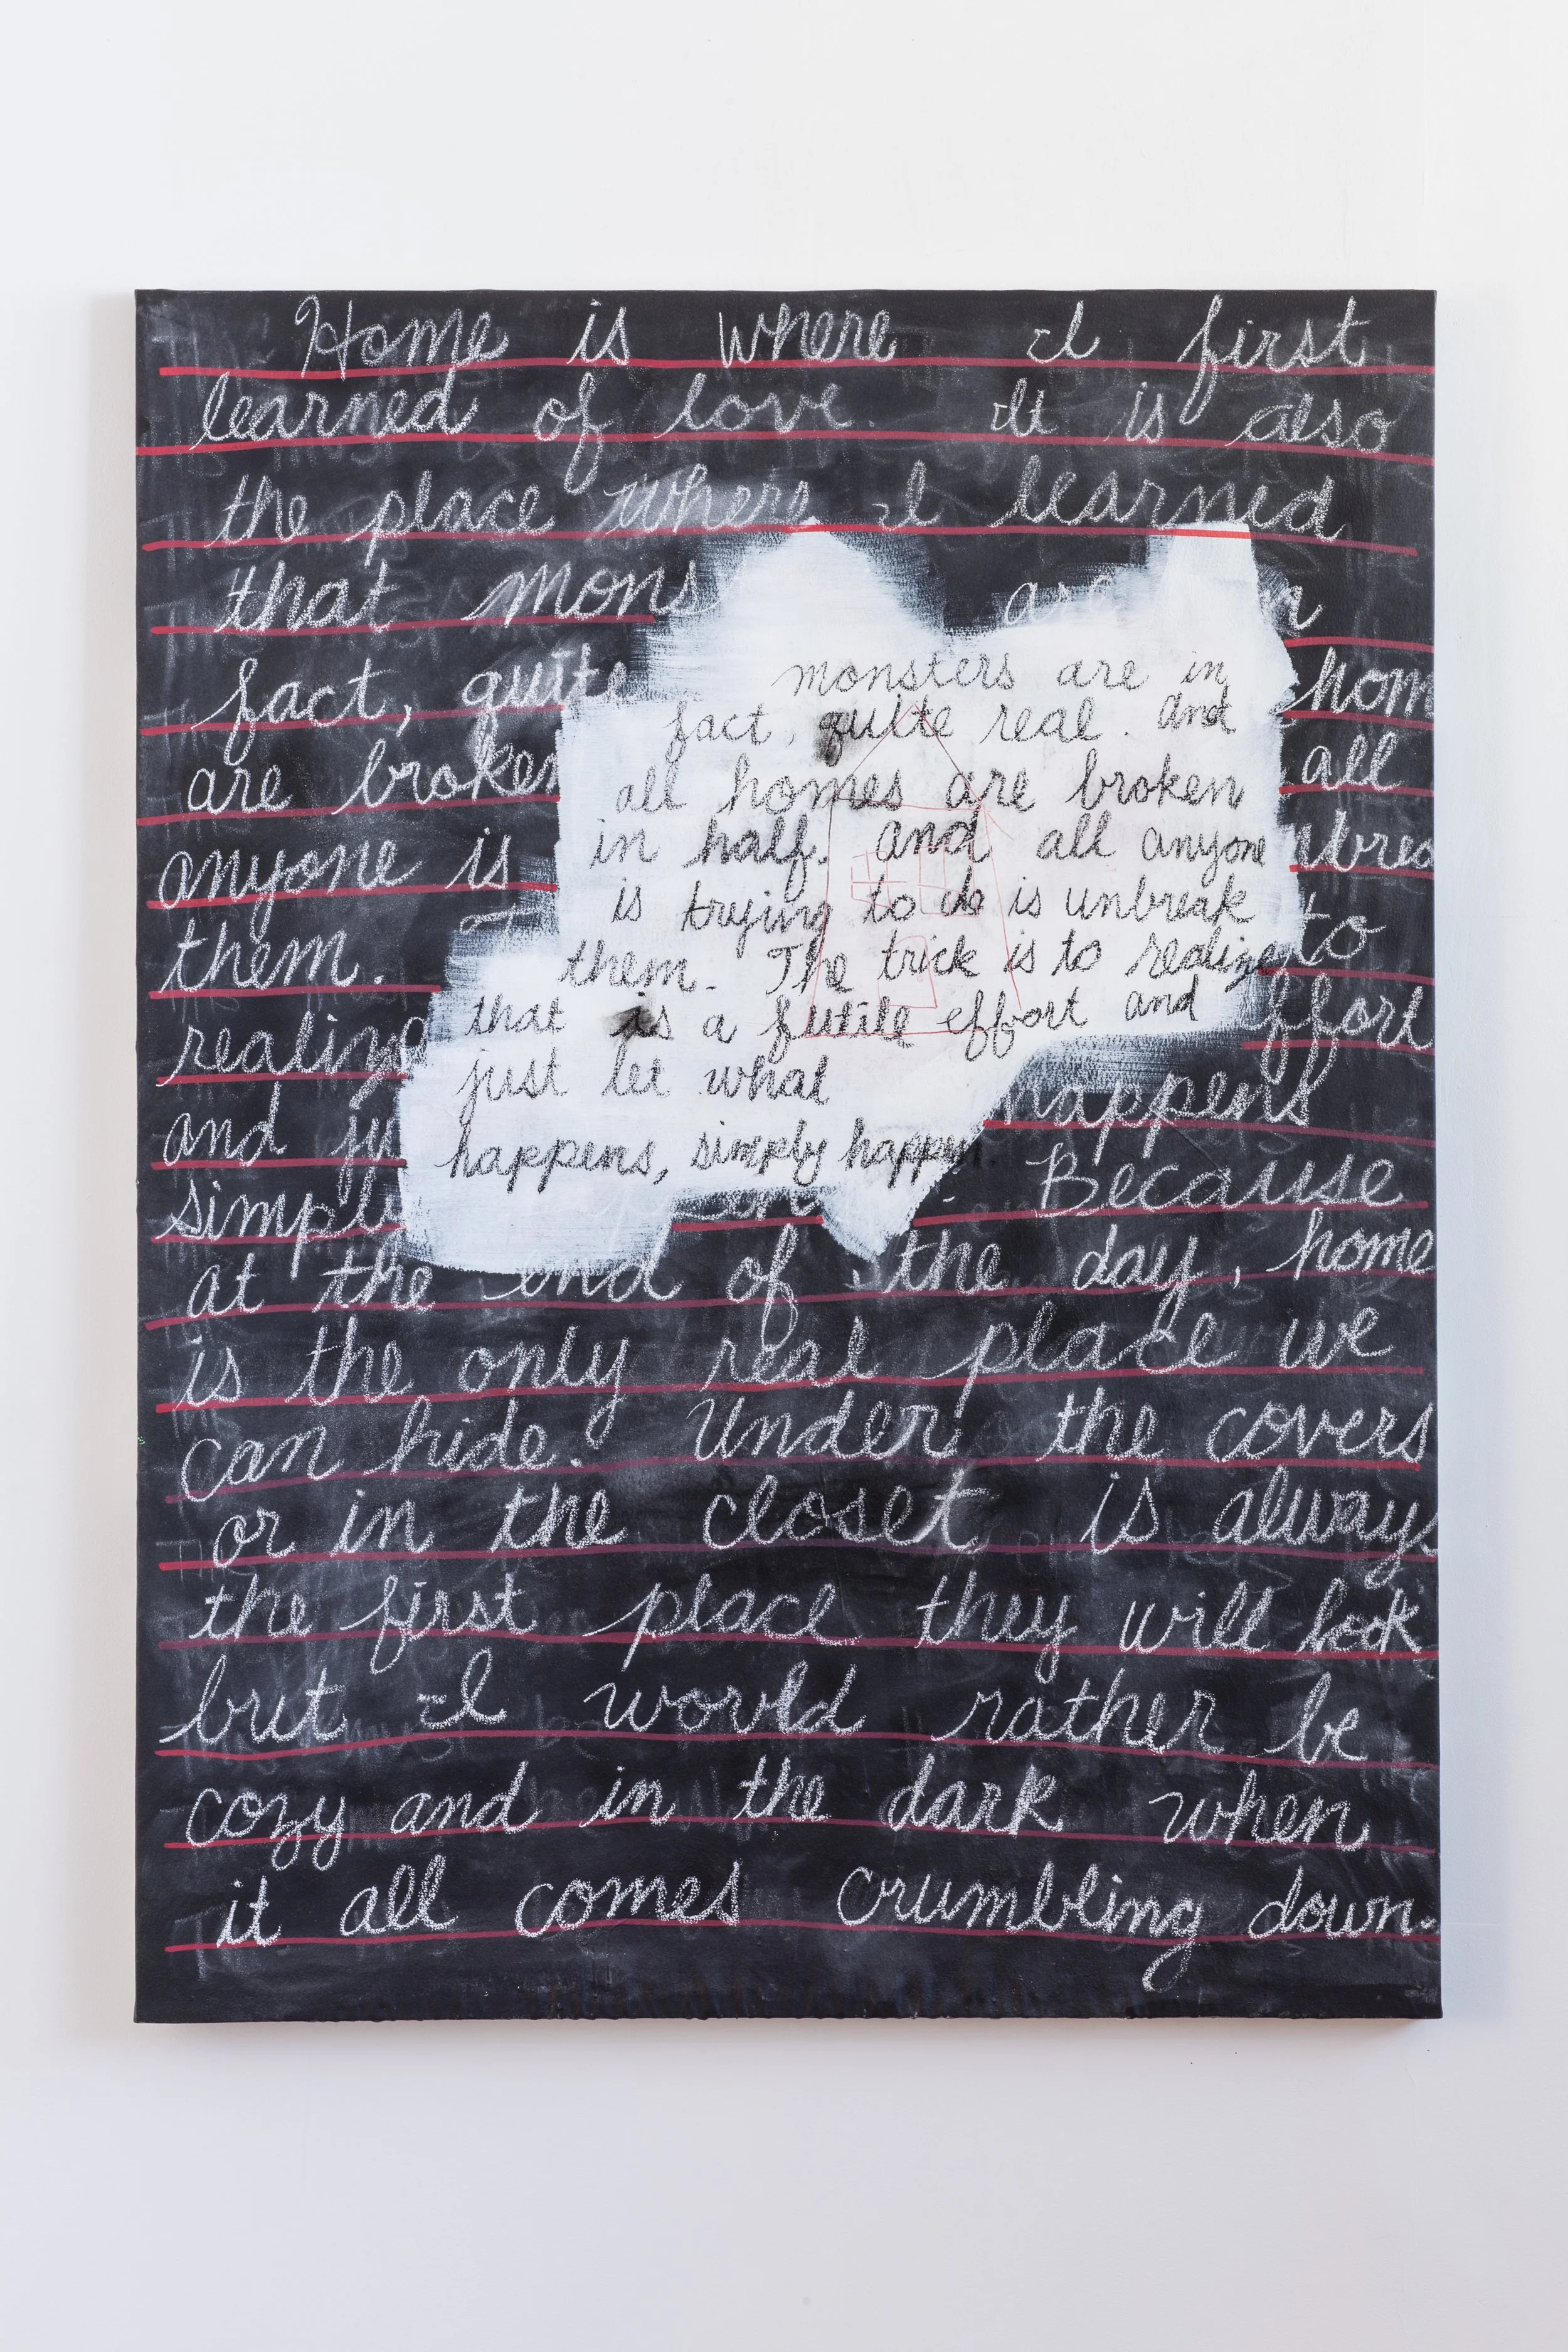 Home is where I first
learned of love. It is also
the place where I learned
that mons are
fact, quite hom
monsters are in
fact, quite real. And
are broken all
all homes are broken
in half. And all anyone
anyone is
is trying to do is unbreak
them. to
them. The trick is to realize
that is a futile effort and
realing ffort
just let what
and ju happens
happens, simply happen.
simply Because
at the end of the day, home
is the only real place we
can hide. Under the covers
or in the closet is always
the first place they will look
but I would rather be
cozy and in the dark when
it all comes crumbling down.